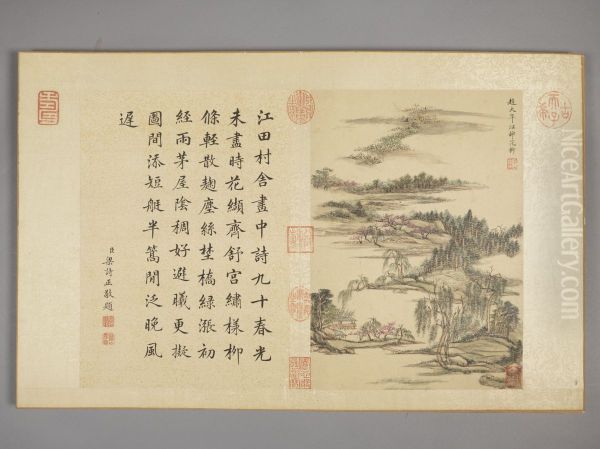 趙大年江邨花柳
古稀天子
江田村舍畫中詩九十春光
未盡時花纈齊舒宮繡樣柳
條輕散麹塵絲埜橋綠漲初
經雨茅屋陰稠好避曦更擬
圖間添短艇半篙閒泛晚風
遲
臣梁詩正敬題
NiceArtGallery.com